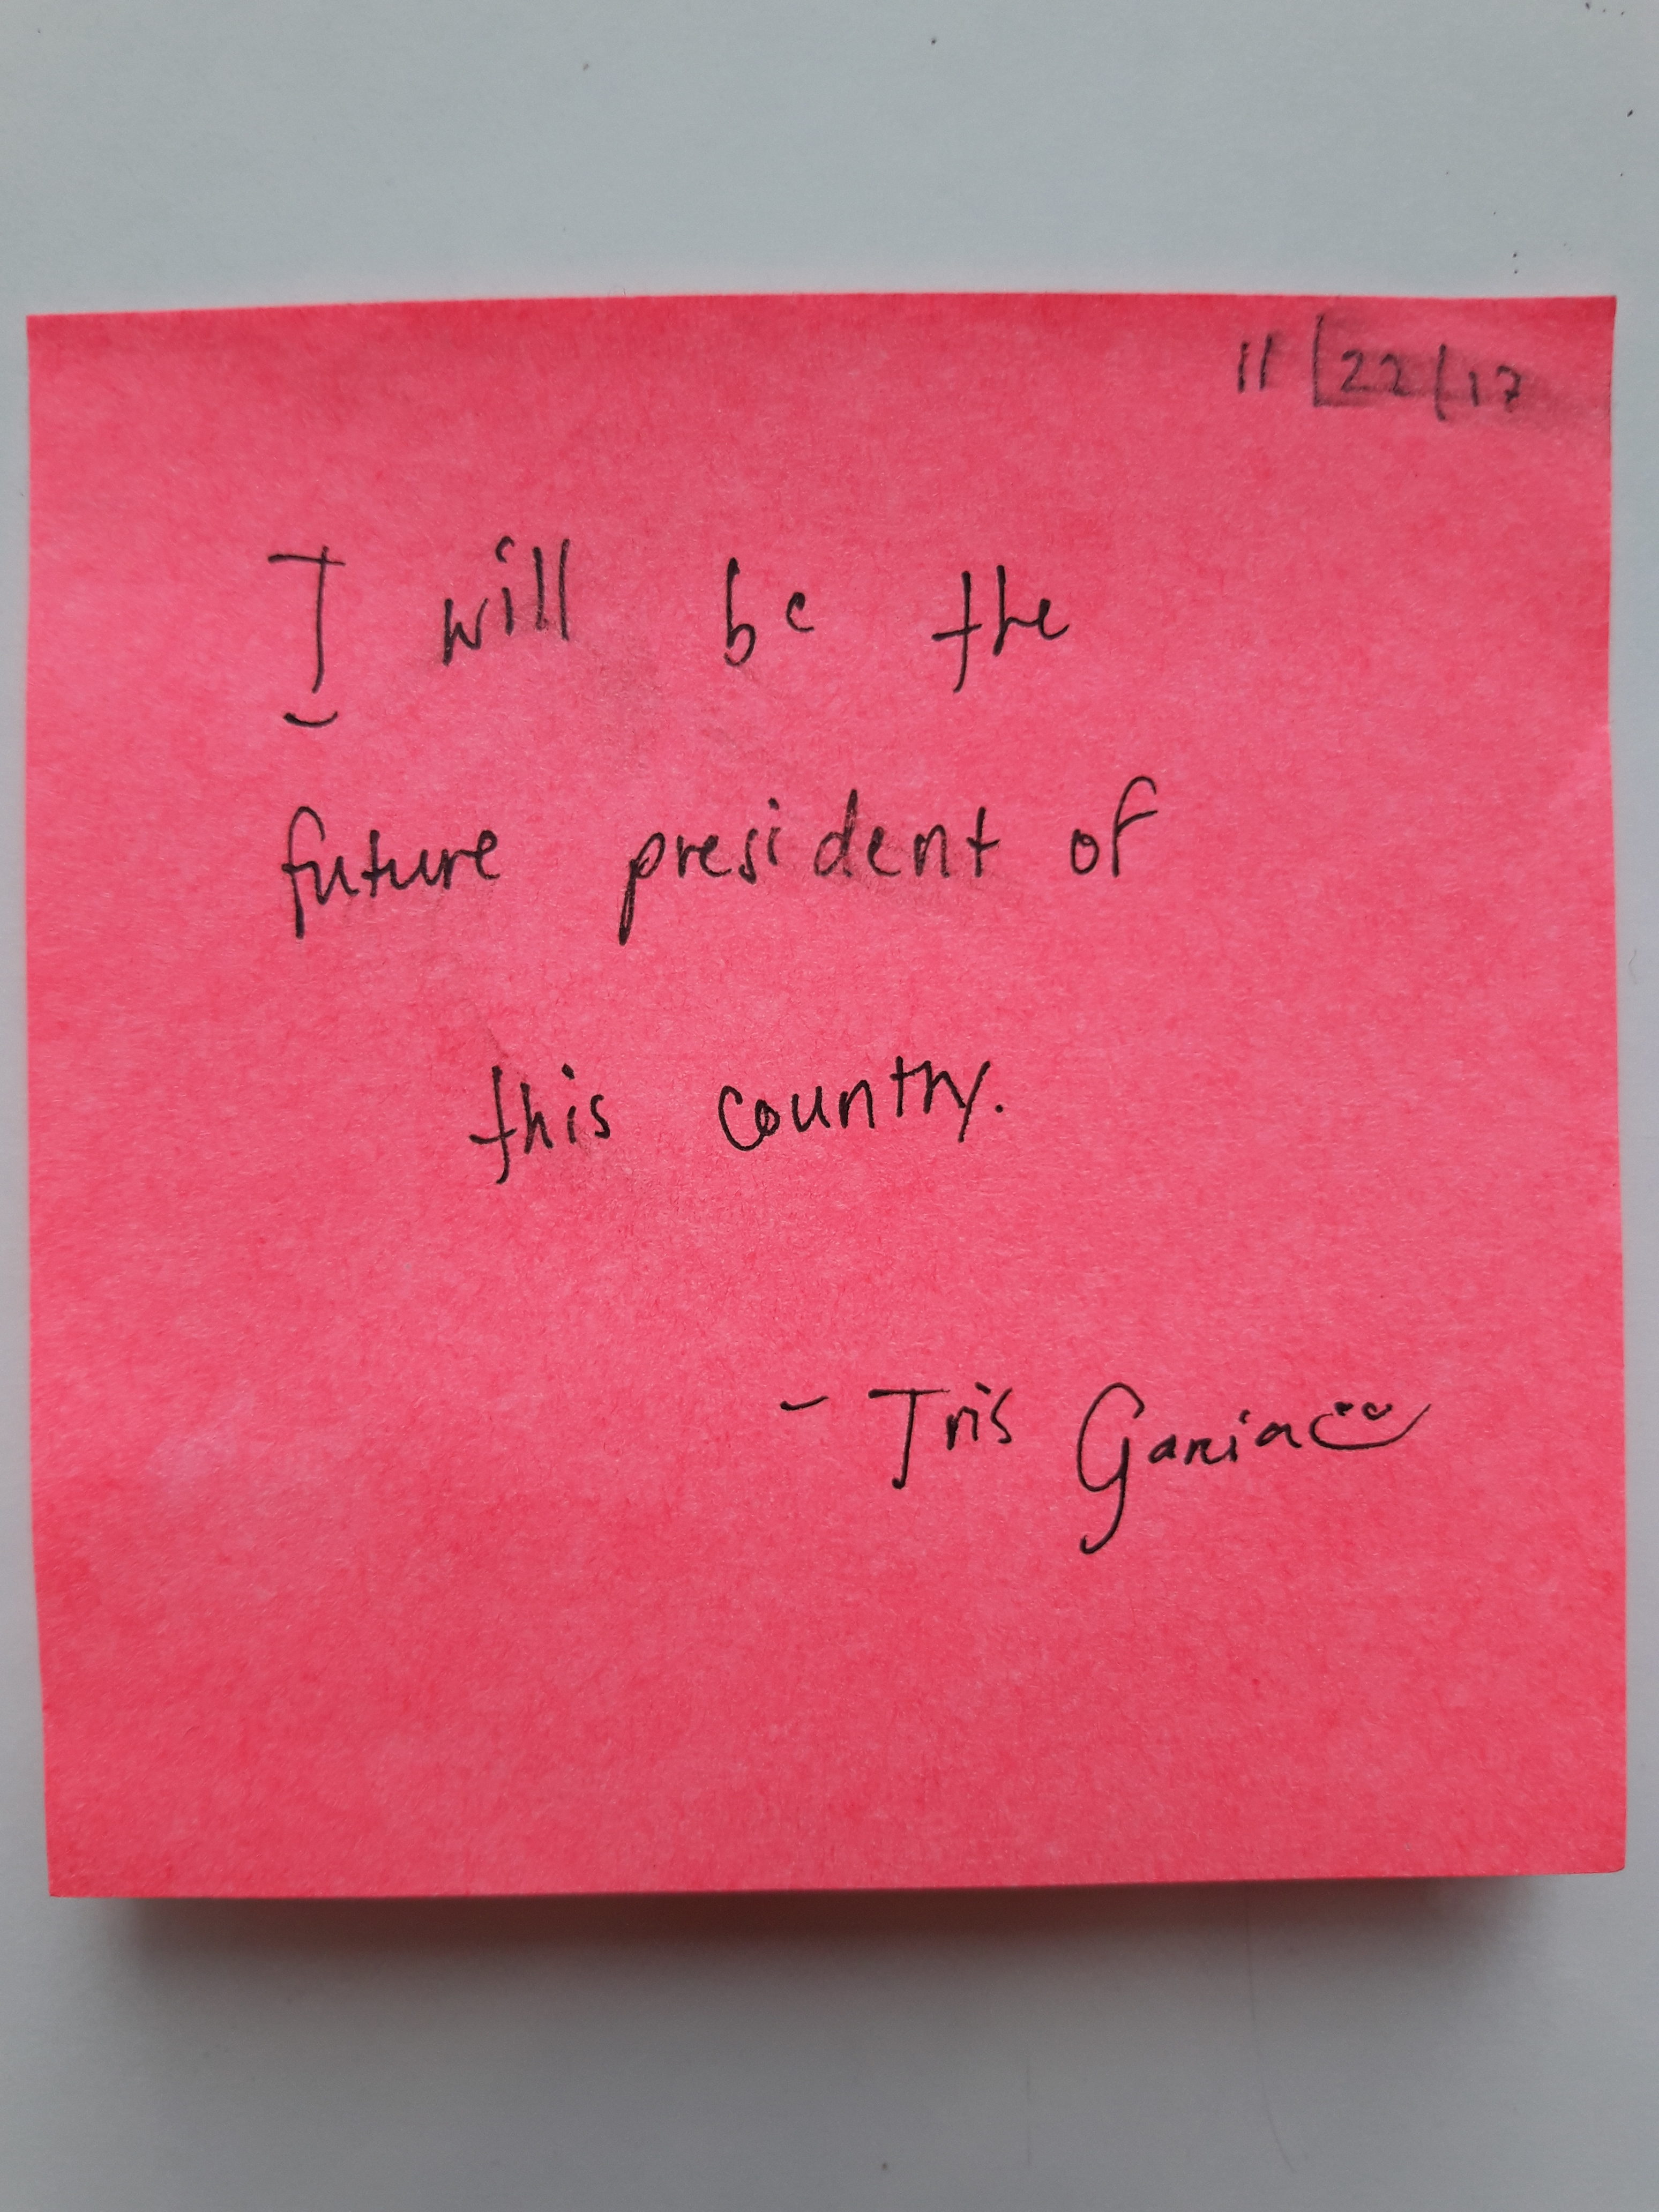 11/22/17
I will be the
future president of
this country.
- Iris Garcia